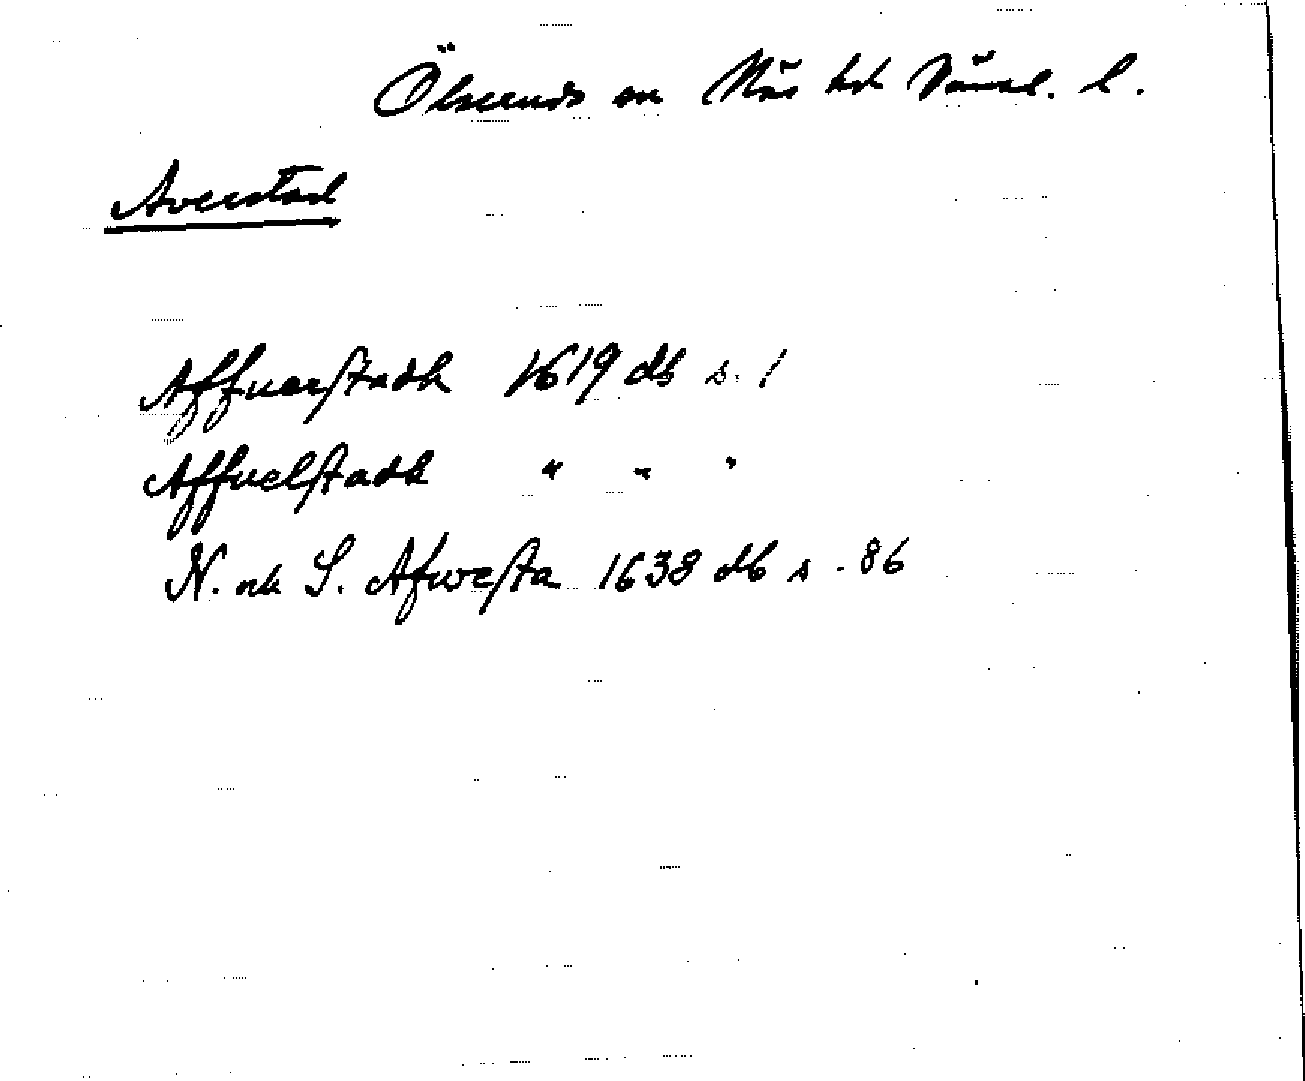 Ölseruds sn Näs hd Värml. l.
Averstad
Affuerstadh 1619 db s. 1
Affuelstadh " " "
N. och S. Afwesta 1638 db s. 86